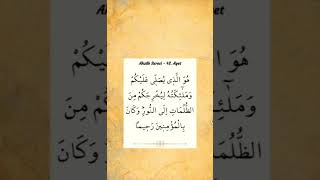 Ahzâb Suresi - 43. Ayet
هُوَ الَّذِى يُصَلِّى عَلَيْكُمْ
وَمَلٰٓئِكَتُهُ لِيُخْرِجَكُمْ مِنَ
الظُّلُمَاتِ اِلَى النُّورِ وَكَانَ
بِالْمُؤْمِنِينَ رَحِيماً